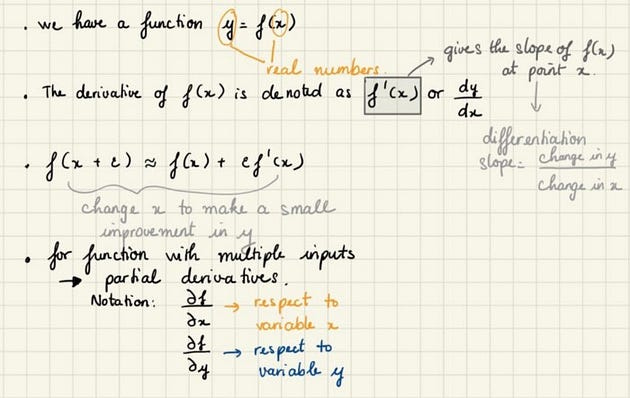 . we have a function y = f(x)
real numbers.
gives the slope of f(x)
at point x.
. The derivative of f(x) is denoted as f'(x) or dy/dx
differentiation
slope = change in y / change in x
. f(x + e) ≈ f(x) + e f'(x)
change x to make a small
improvement in y
• for function with multiple inputs
→ partial derivatives.
Notation: ∂f/∂x → respect to
variable x
∂f/∂y → respect to
variable y